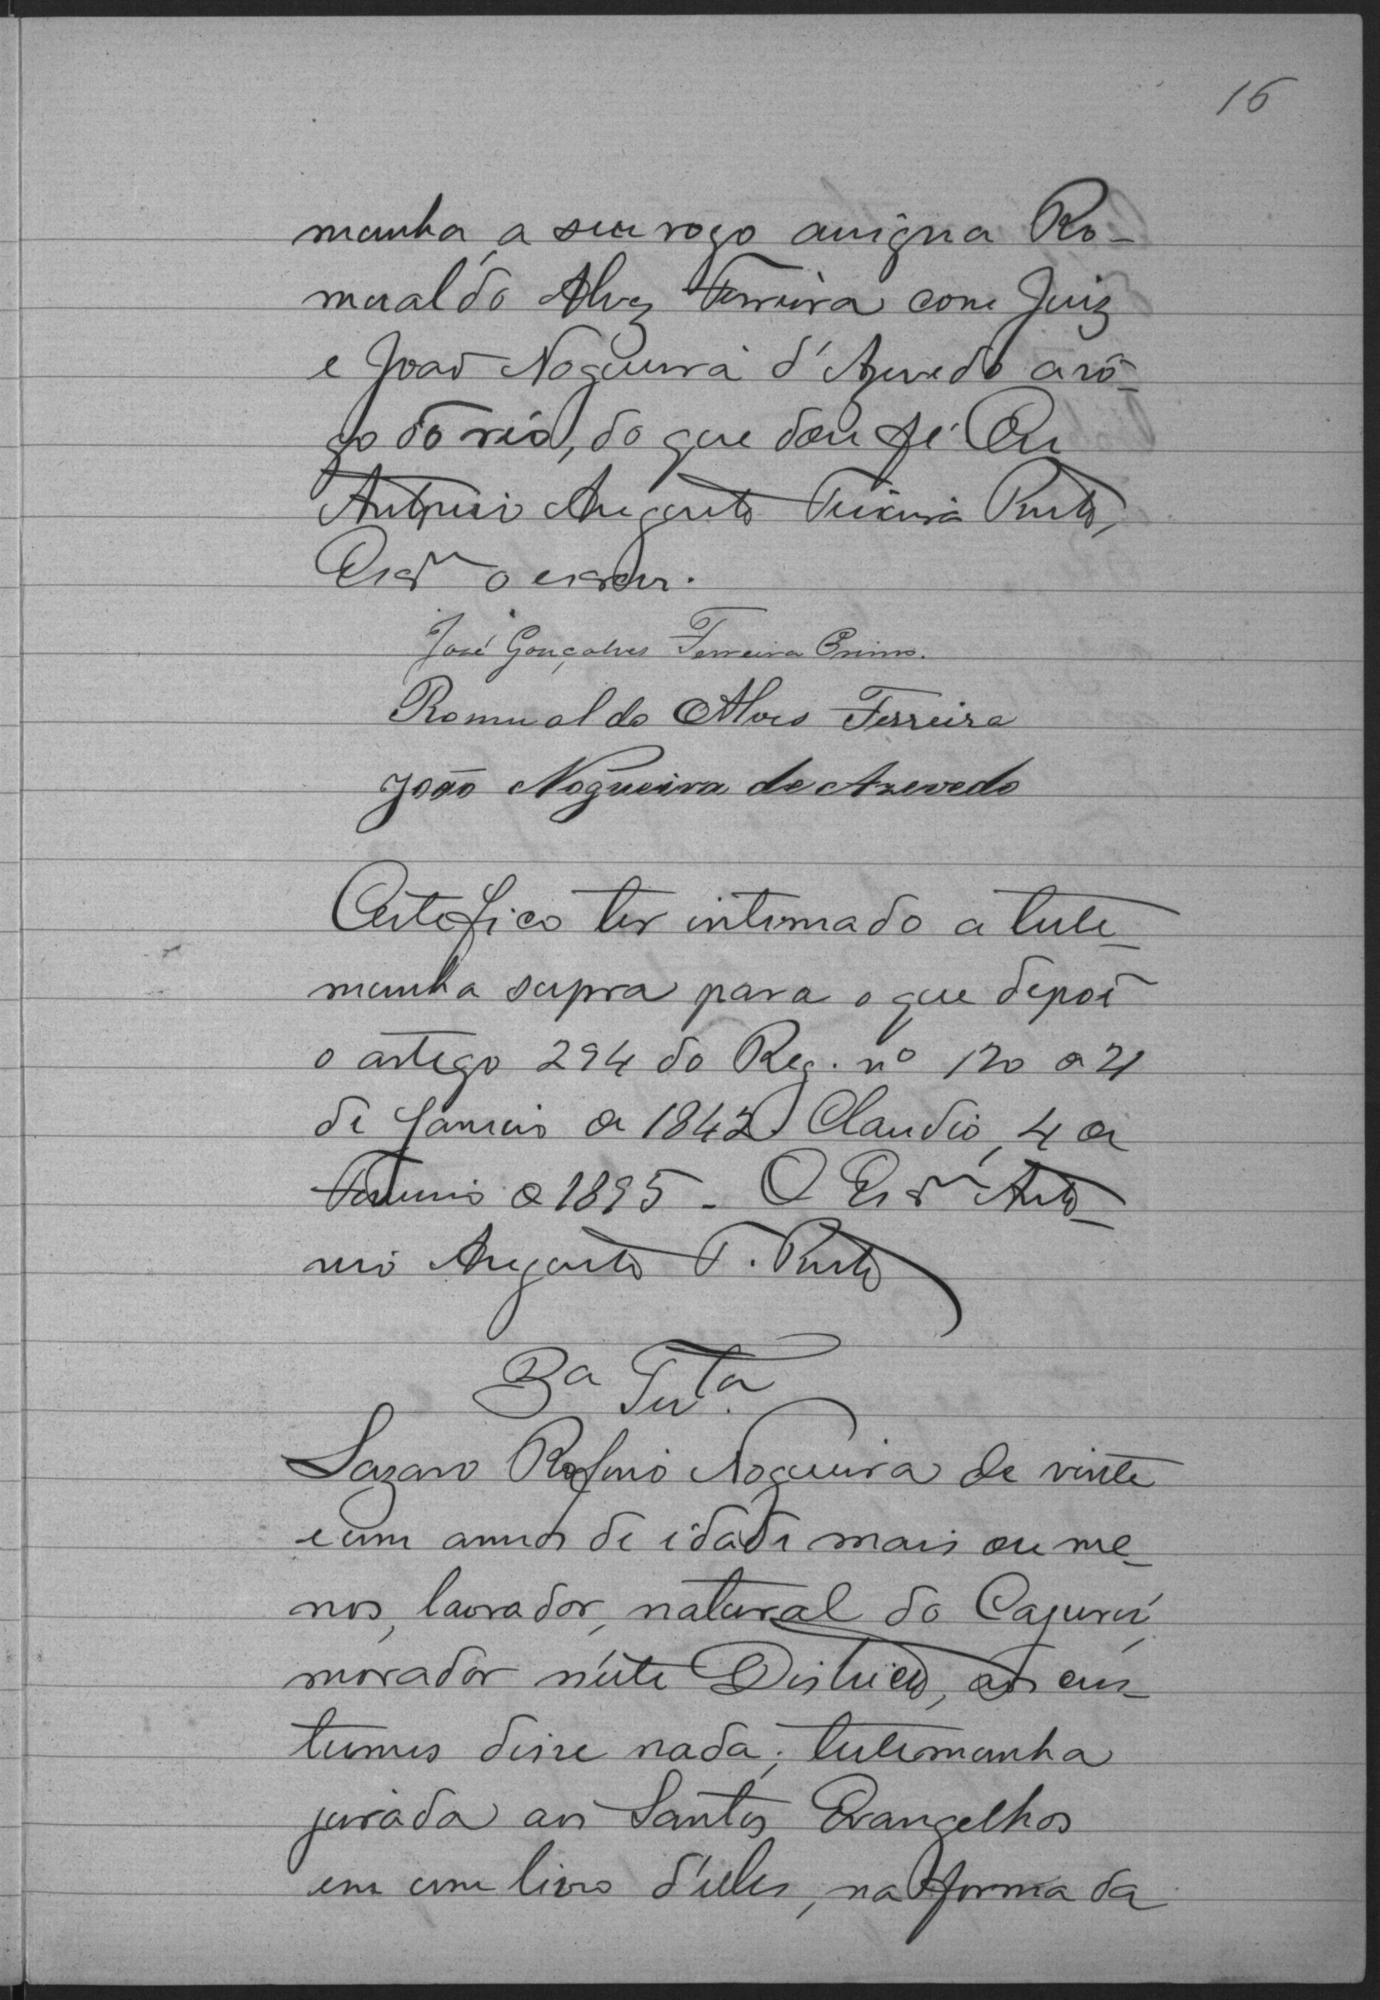 16
munha, a seu rogo assigna Ro-
mualdo Alvez Ferreira com Juiz
e João Nogueira d'Azevedo a rô-
go do réo, do que dou fé. Eu
Antonio Augusto Teixeira Porto,
Escrm o escrevi.
José Gonçalves Ferreira Primo.
Romualdo Alves Ferreira
João Nogueira de Azevedo
Certefico ter intimado a teste-
munha supra para o que dispoi
o artego 294 do Reg. nº 120 de 31
de Janeiro de 1842. Claudio, 4 de
Fevereiro de 1895 - O Escrm Anto-
nio Augusto T. Porto
3ª Testa.
Lazaro Rofino Nogueira de vinte
e um annos de idade mais ou me-
nos, lavrador, natural do Cajurú,
morador n'este Districto, aos cus-
tumes disse nada; testemunha
jurada aos Santos Evangelhos
em um livro d'elles, na forma da